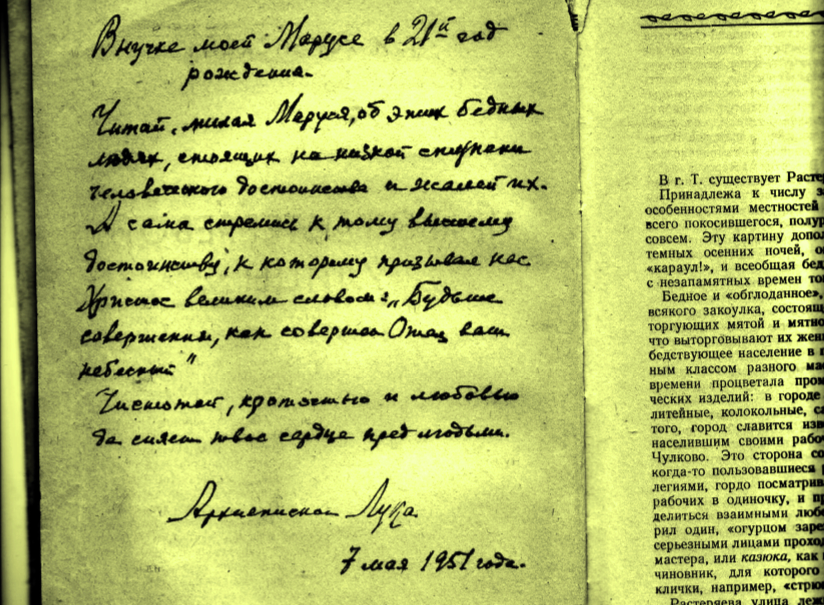 Внучке моей Марусе в 21й год
рождения.
Читай, милая Маруся, об этих бедных
людях, стоящих на низкой ступени
человеческого достоинства и жалей их.
А сама стремись к тому высшему
достоинству, к которому призывал нас
Христос великим словом: „Будьте
совершенны, как совершен Отец ваш
небесный"
Чистотой, кротостью и любовью
да сияет твое сердце пред людьми.
Архиепископ Лука
7 мая 1951 года.
В г. Т. существует Растер
Принадлежа к числу з
особенностями местностей
всего покосившегося, полур
совсем. Эту картину допол
темных осенних ночей, о
«караул!», и всеобщая бед
с незапамятных времен то
Бедное и «обглоданное»,
всякого закоулка, состоящ
торгующих мятой и мятно
что выторговывают их жен
бедствующее население в
ным классом разного ма
времени процветала пром
ческих изделий: в городе
литейные, колокольные, са
того, город славится изв
населившим своими рабо
Чулково. Это сторона со
когда-то пользовавшиеся
легиями, гордо посматрив
рабочих в одиночку, и п
делиться взаимными любе
рил один, «огурцом заре
серьезными лицами проход
мастера, или казюка, как
чиновник, для которого
клички, например, «стрю
Растеряева улица леж